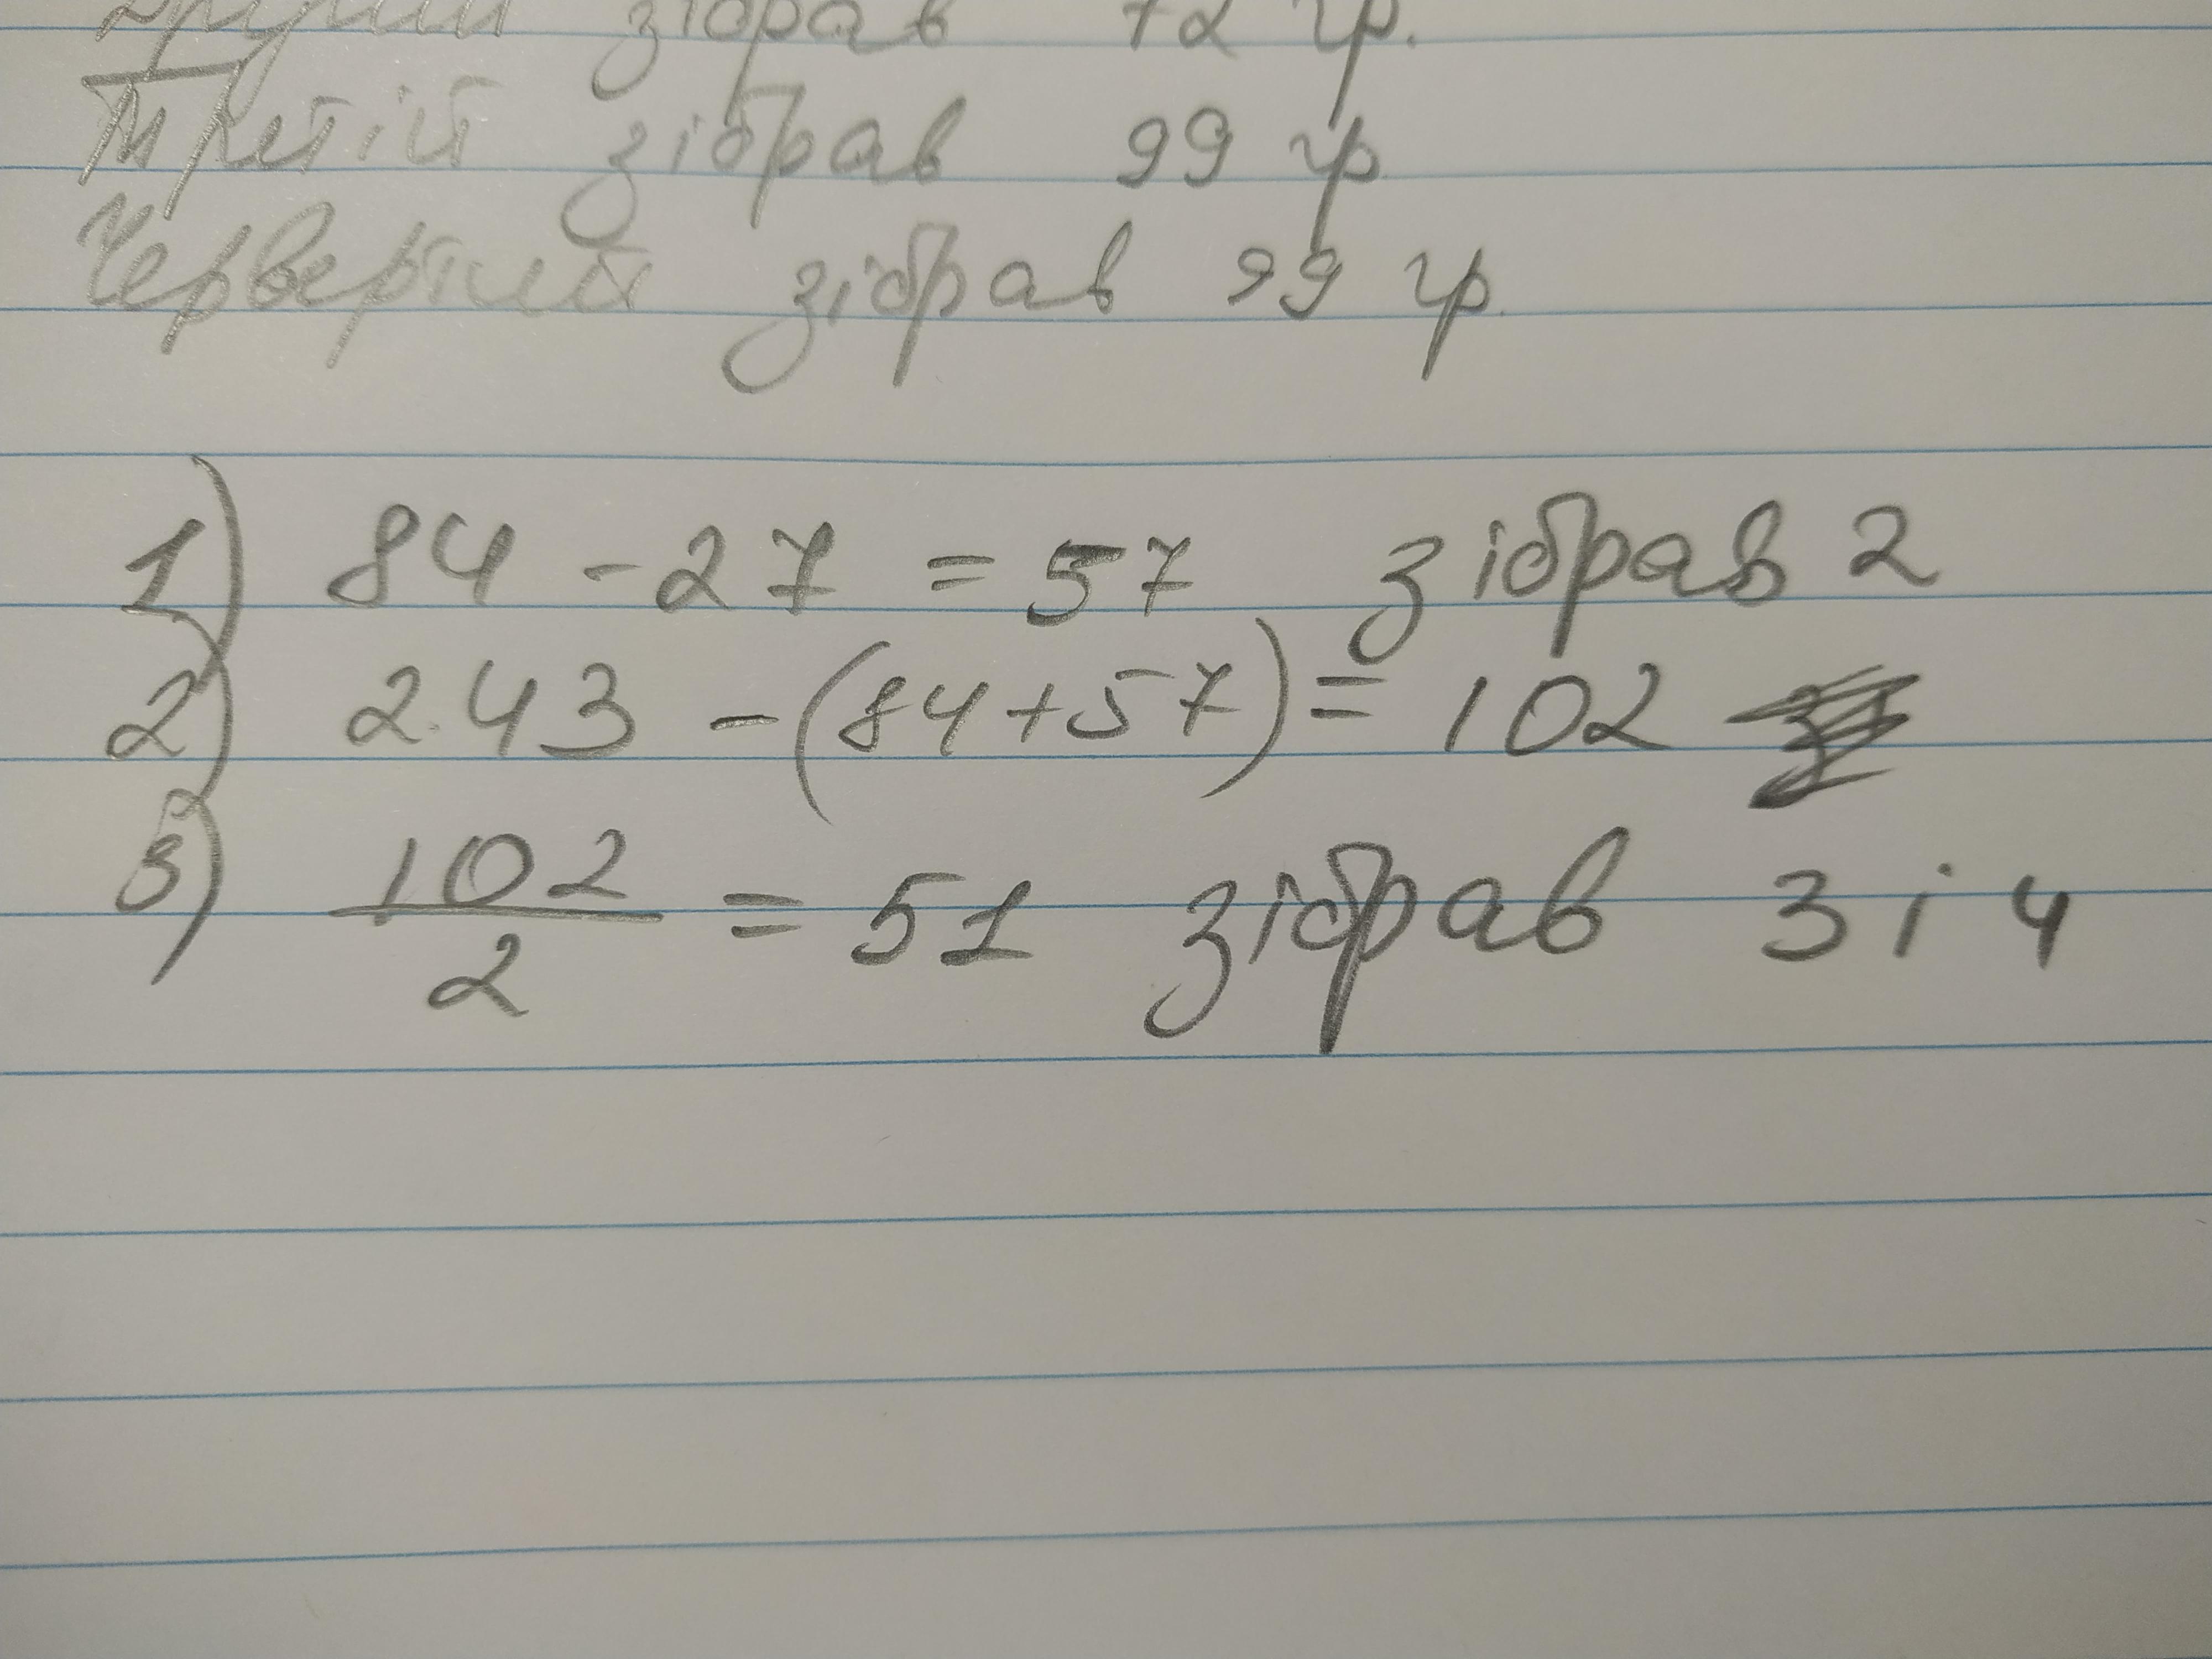 Другий зібрав 72 гр.
Третій зібрав 99 гр.
Червертий зібрав 99 гр.
1) 84 - 27 = 57 зібрав 2
2) 243 - (84+57) = 102
3) 102/2 = 51 зібрав 3 і 4